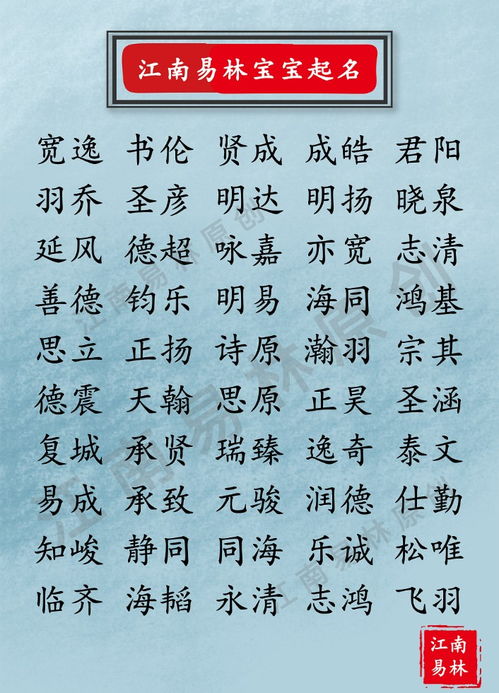 江南易林宝宝起名
宽逸 书伦 贤成 成皓 君阳
羽乔 圣彦 明达 明扬 晓泉
延风 德超 咏嘉 亦宽 志清
善德 钧乐 明易 海同 鸿基
思立 正扬 诗原 瀚羽 宗其
德震 天翰 思原 正昊 圣涵
复城 承贤 瑞臻 逸奇 泰文
易成 承致 元骏 润德 仕勤
知峻 静同 同海 乐诚 松唯
临齐 海韬 永清 志鸿 飞羽
江南易林原创
江南易林原创
江南易林原创
江南
易林